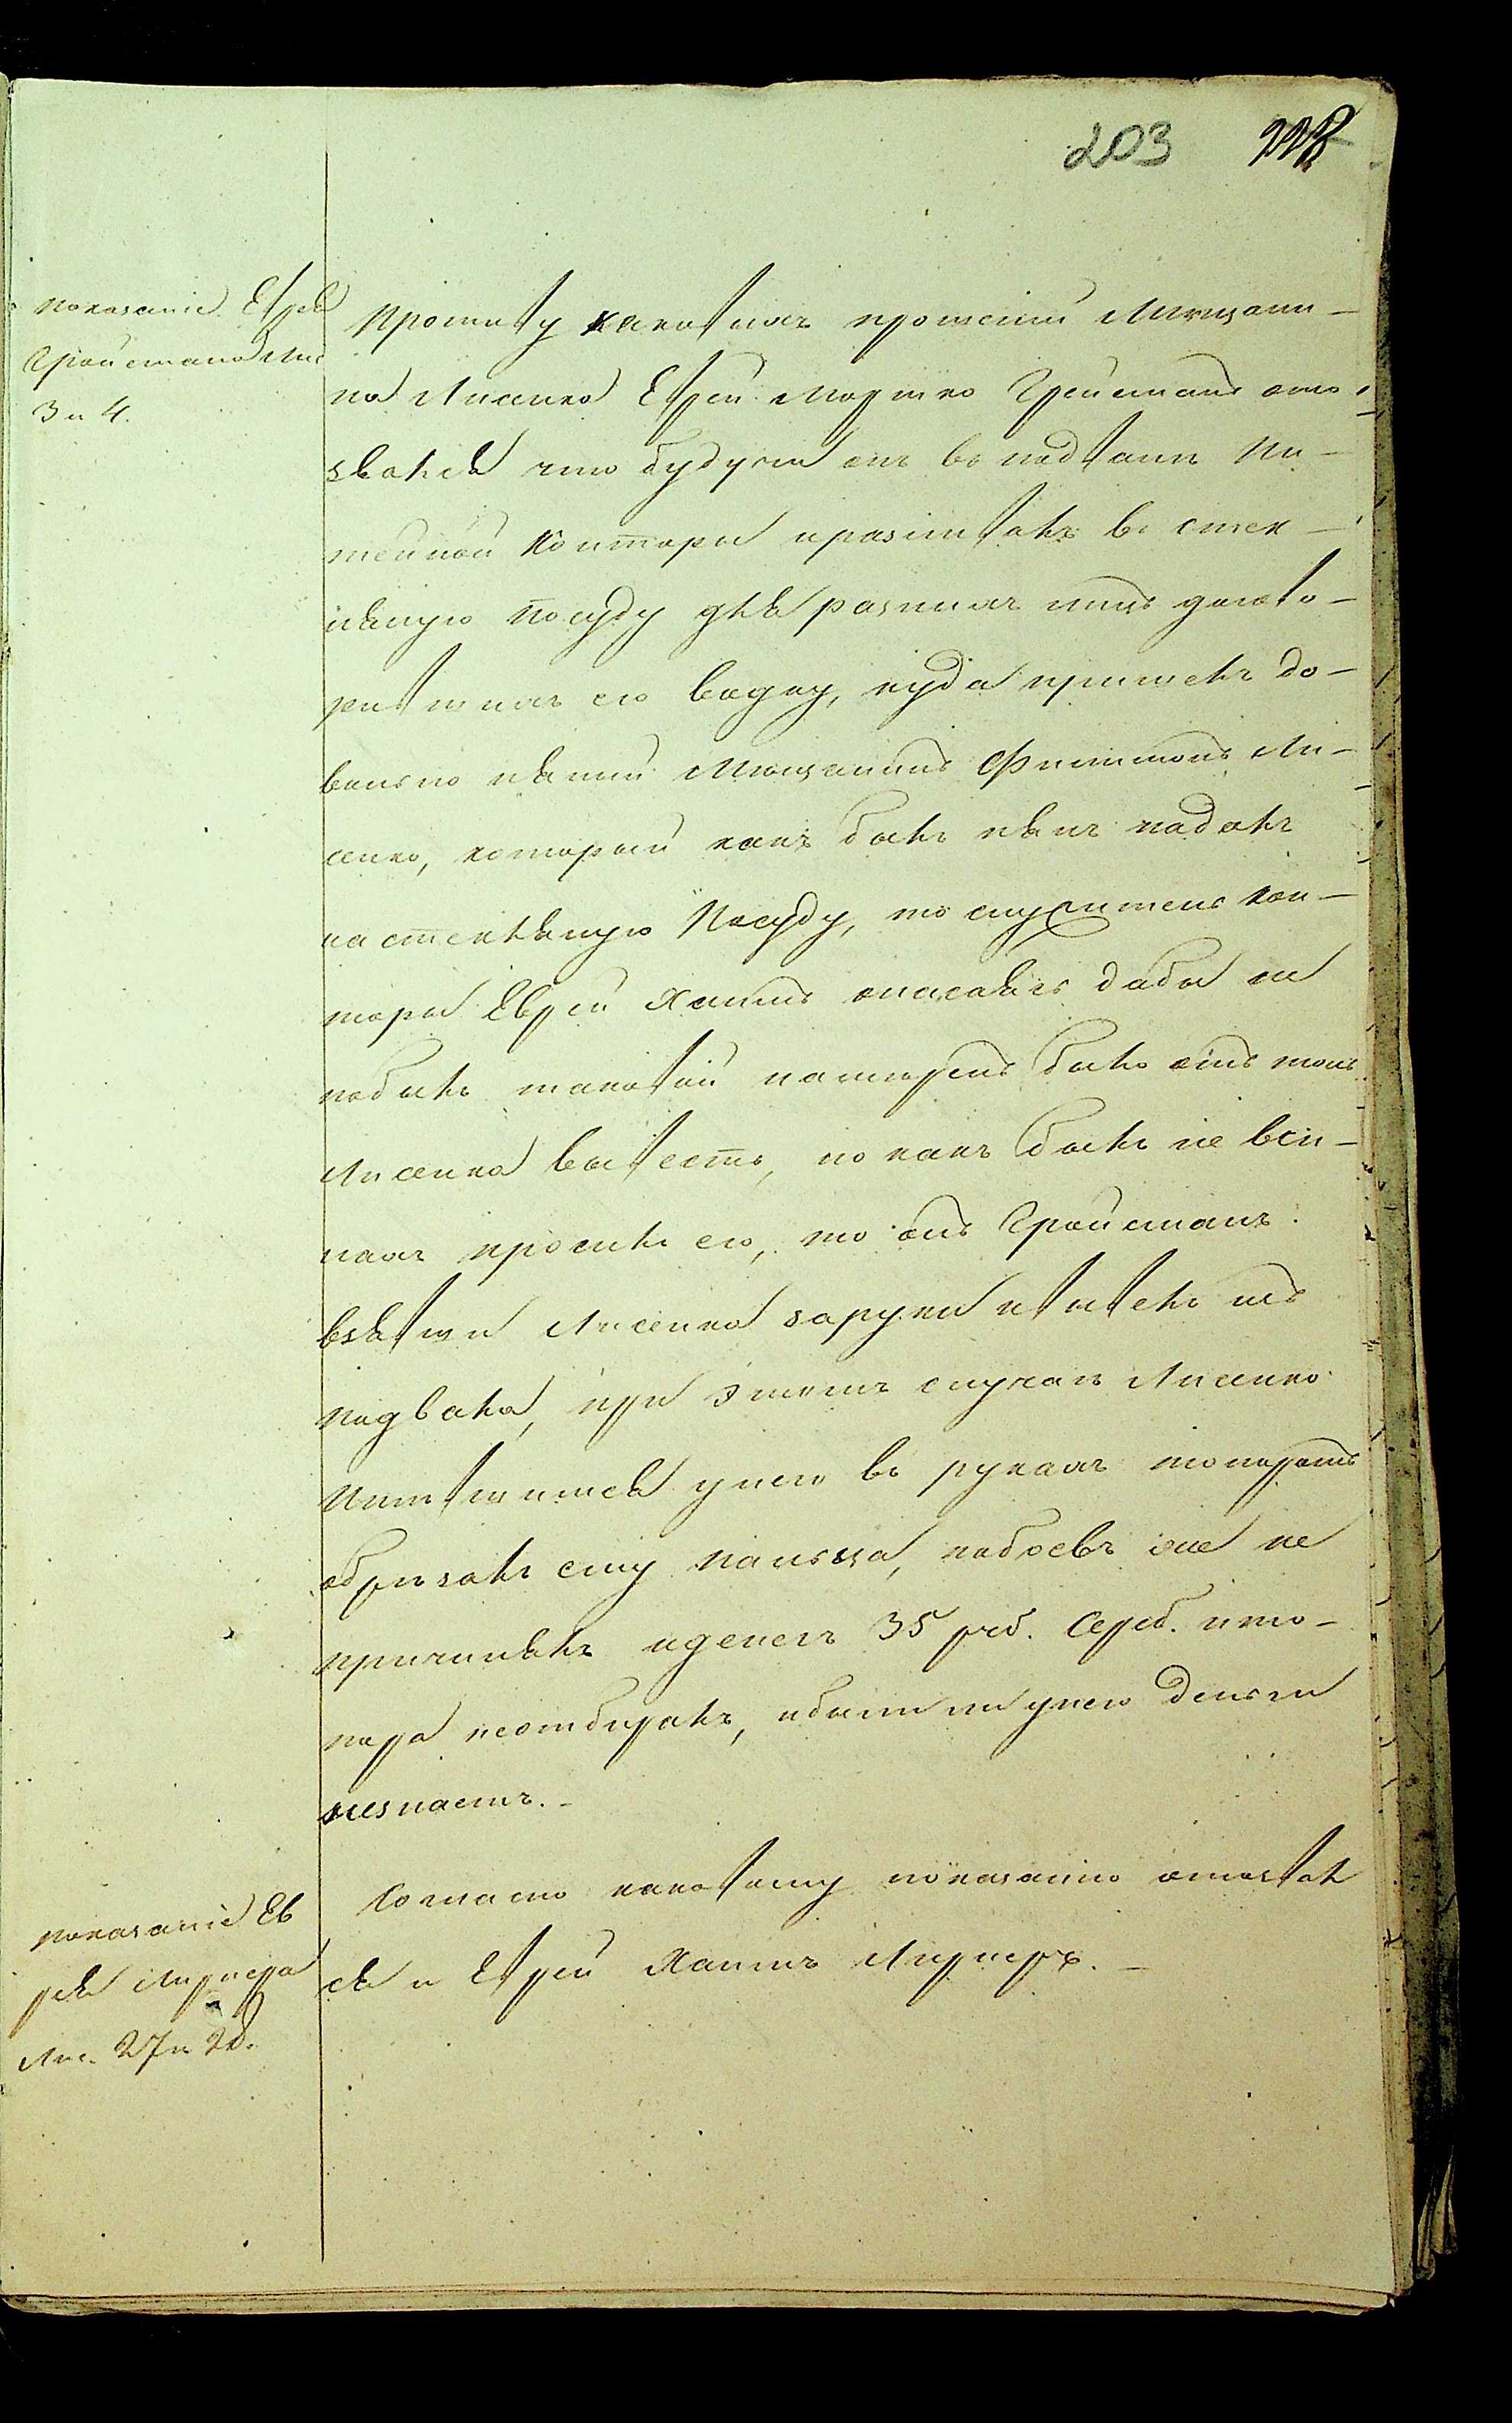 203
показаніе Еврея
Гройсмана Лис.
3 и 4.
Противу каковыхъ прошеній Мѣщани-
на Лисенко Еврей Мортко Гройсманъ ото-
звался что будучи онъ въ подвалѣ Пи-
тейной Конторы и разливалъ въ стек-
лянную посуду для разныхъ лицъ
его водку, куда пришелъ до-
вольно пьяный Мѣщанинъ Филимонъ Ли-
сенко, который какъ былъ пьянъ падалъ
на стеклянную Посуду, то служитель Кон-
торы Еврей Хаимъ опасаясь дабы не
побилъ таковой намѣренъ былъ онъ того
Лисенка вывесть, но какъ былъ не въси-
лахъ просилъ его, то онъ Гройсманъ
взявши Лисенка заруки и вывелъ изъ
подвала, при этомъ случаѣ Лисенко
унего въ рукахъ топоромъ
обрѣзалъ ему пальца, побоевъ же не
причинялъ и денегъ 35 руб. Сереб. и то-
пора неотбиралъ, и были ли унего деньги
незнаетъ.-
показаніе Ев
рея Лирнера
Лис. 27 и 28.
Согласно каковому показанію отозвал
ся и Еврей Хаимъ Лирнеръ.-